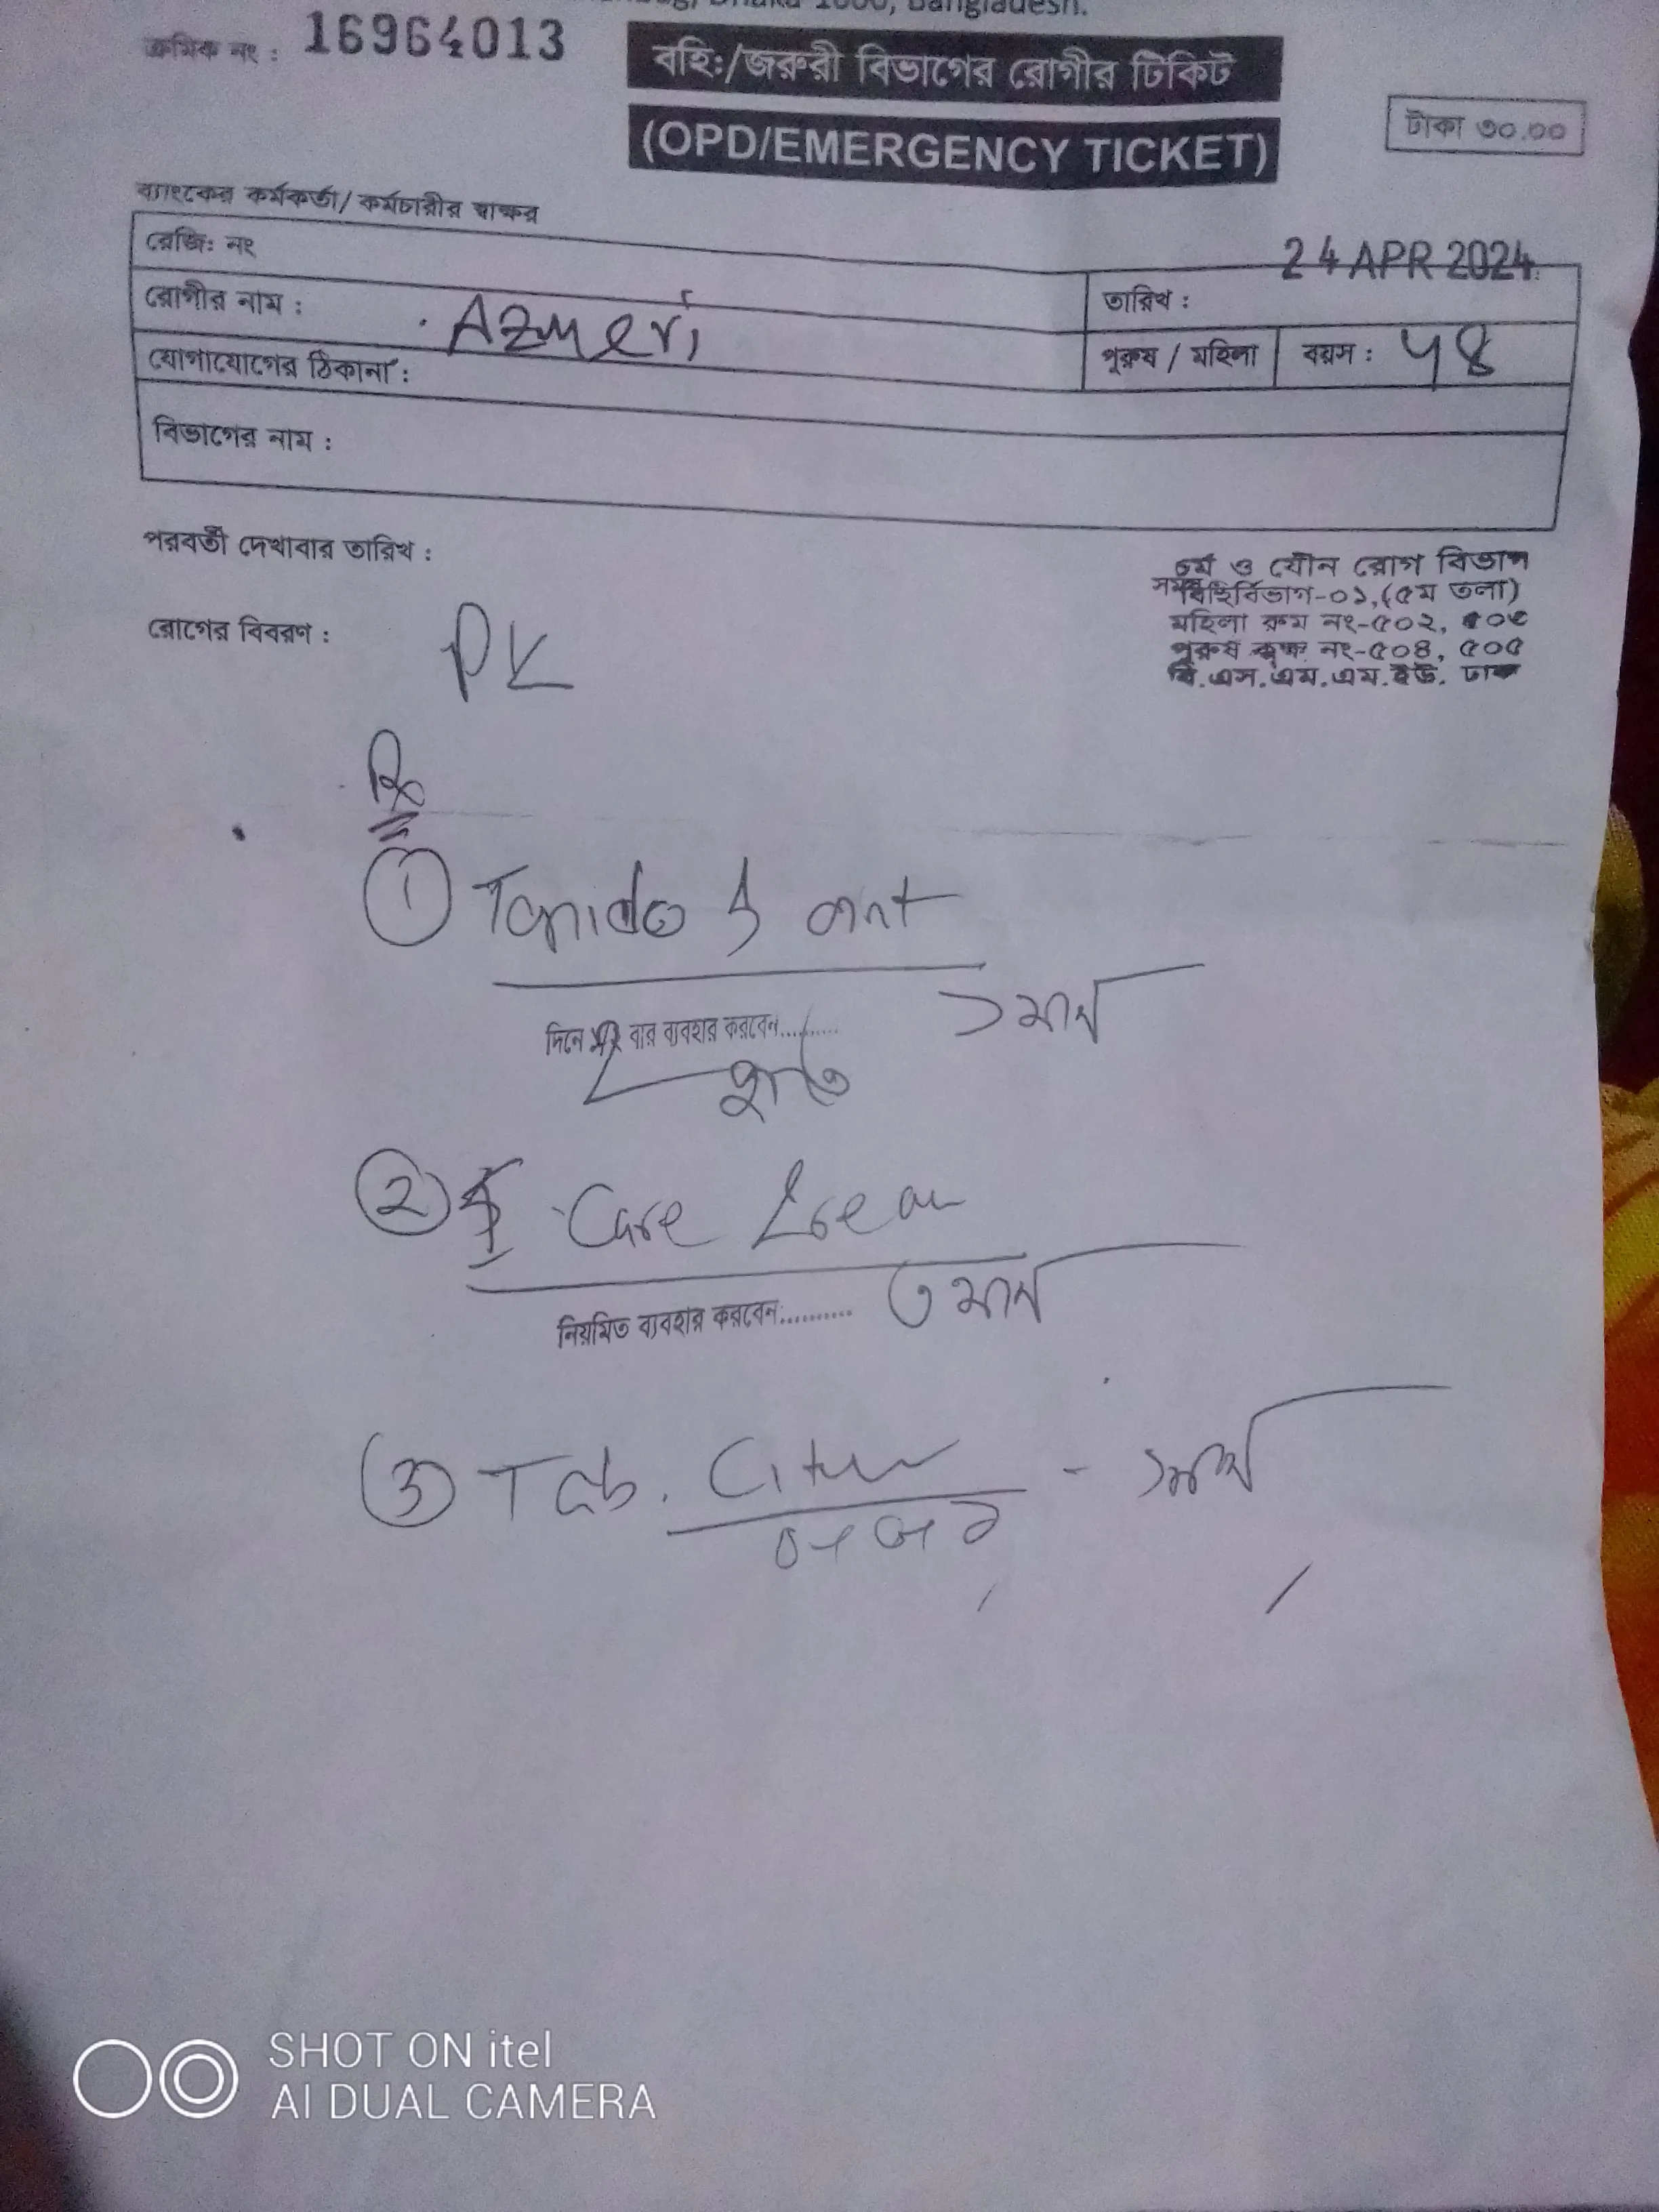 Dhaka 1000, Bangladesh.
ক্রমিক নং : 16964013
বহিঃ/জরুরী বিভাগের রোগীর টিকিট
(OPD/EMERGENCY TICKET)
টাকা ৩০.০০
ব্যাংকের কর্মকর্তা/ কর্মচারীর স্বাক্ষর
রেজি: নং
24 APR 2024
রোগীর নাম : Azmeri
তারিখ :
যোগাযোগের ঠিকানা :
পুরুষ / মহিলা
বয়স : ५8
বিভাগের নাম :
পরবর্তী দেখাবার তারিখ :
চর্ম ও যৌন রোগ বিভাগ
বহির্বিভাগ-০১,(৫ম তলা)
রোগের বিবরণ :
মহিলা রুম নং-৫০২,
পুরুষ কক্ষ নং-৫০৪, ৫০৫
বি.এস.এম.এম.ইউ. ঢাকা
PK
Rx
① oint
দিনে বার ব্যবহার করবেন..........
১ মাস
②
Care
নিয়মিত ব্যবহার করবেন..........
৩ মাস
③ Tab.
SHOT ON itel
AI DUAL CAMERA